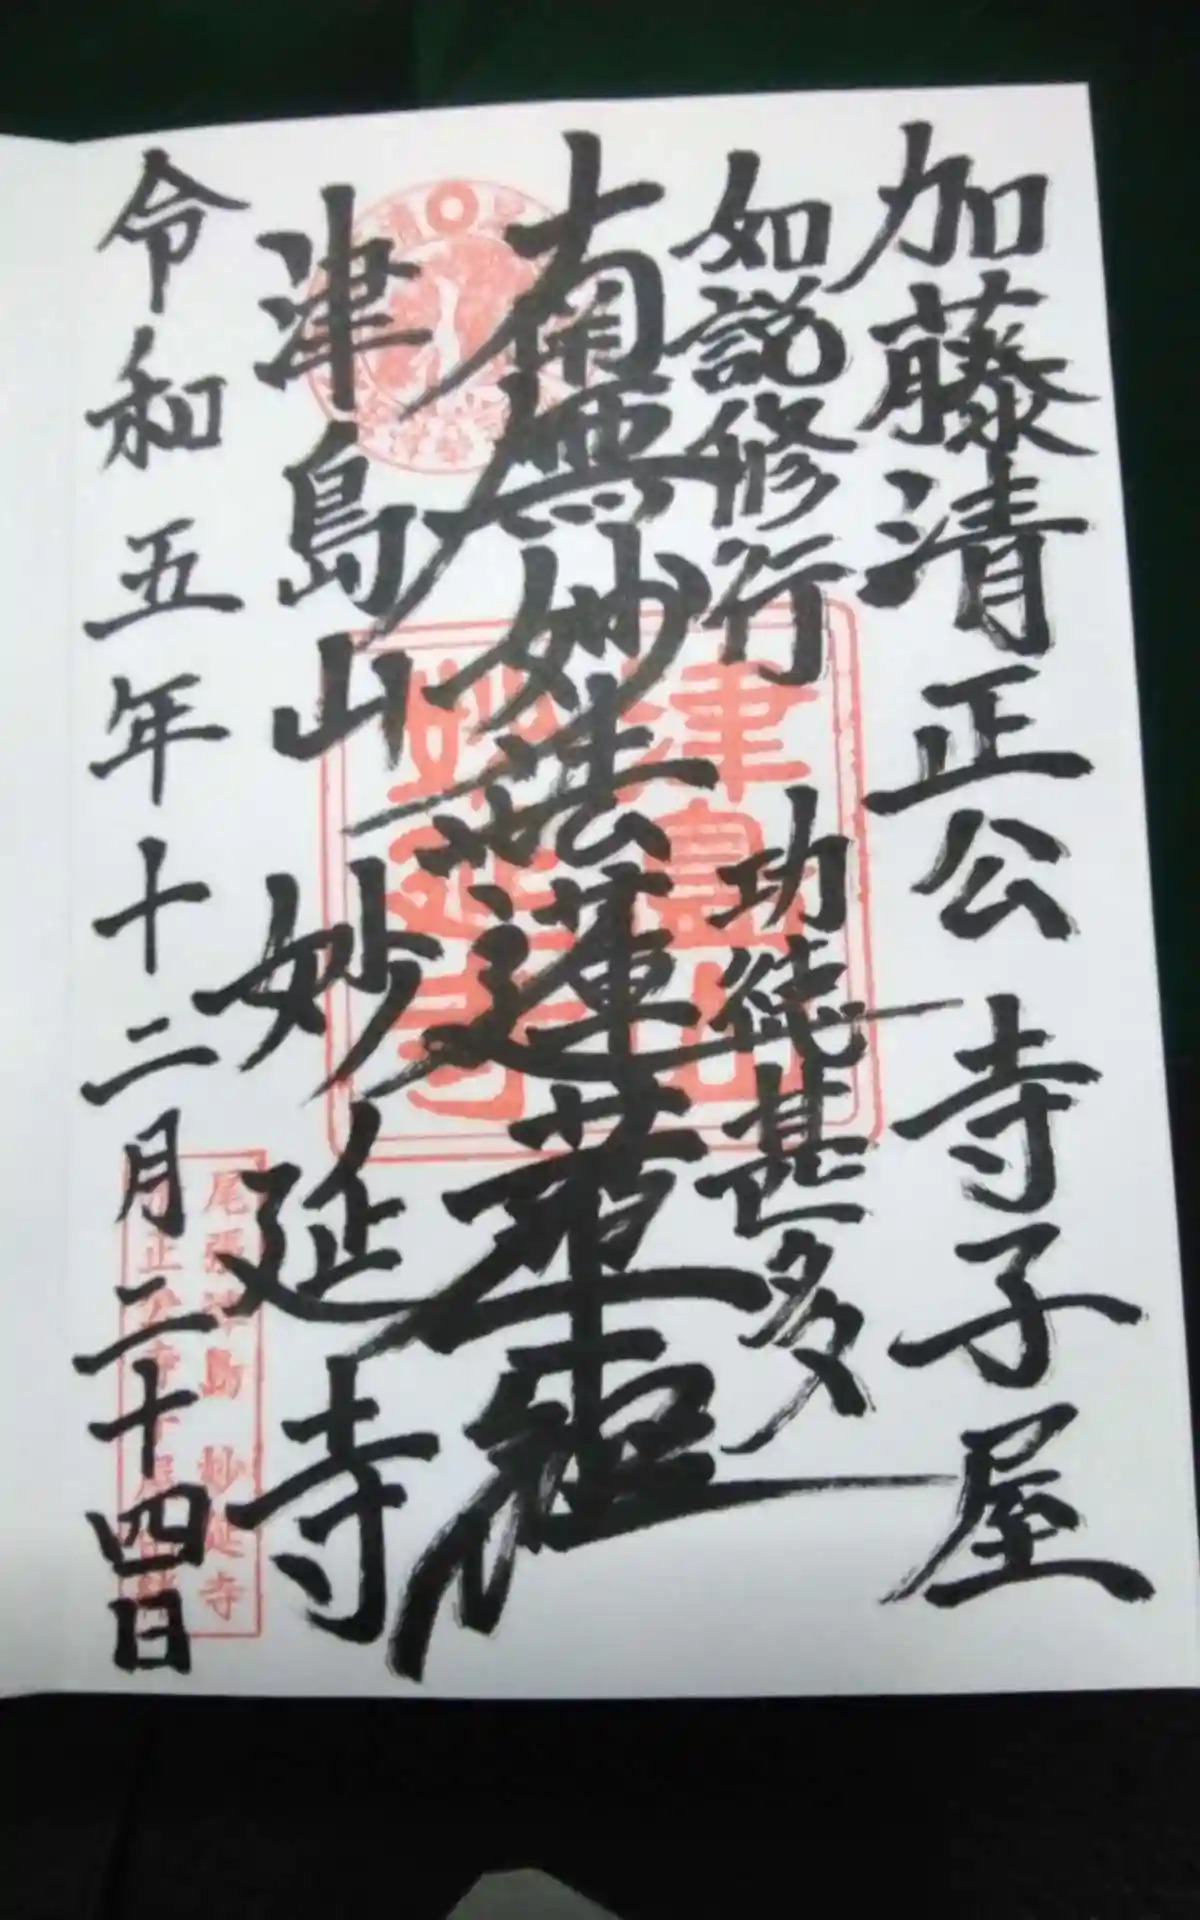 加藤清正公 寺子屋
如説修行 功徳甚多
南無妙法蓮華経
津島山 妙延寺
令和五年十二月二十四日
津島山
妙延寺
尾張津島 妙延寺